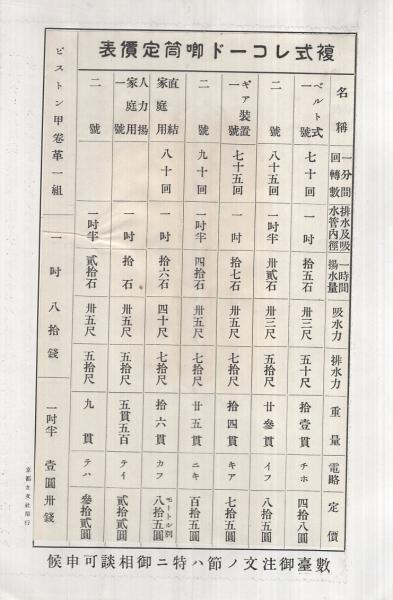 複式レコード喞筒定價表
名稱
一分間回轉數
排水及吸水管內徑
一時間揚水量
吸水力
排水力
重量
電略
定價
ベルト式一號
七十回
一吋
拾五石
卅三尺
五十尺
拾壹貫
チホ
四拾八圓
二號
八十五回
一吋半
卅貳石
卅三尺
五拾尺
廿參貫
イフ
八拾五圓
ギア裝置一號
七十五回
一吋
拾七石
卅五尺
七拾尺
拾四貫
キア
七拾五圓
二號
九十回
一吋半
四拾石
卅五尺
七拾尺
廿五貫
ニキ
百拾五圓
直結家庭用
八十回
一吋
拾六石
四十尺
七拾尺
拾六貫
カフ
モートル別
八拾五圓
人力揚家庭用一號
一吋
拾石
卅五尺
五拾尺
五貫五百
テイ
貳拾貳圓
二號
一吋半
貳拾石
卅五尺
五拾尺
九貫
テハ
參拾貳圓
ピストン甲卷革一組
一吋八拾錢
一吋半壹圓卅錢
數臺御注文ノ節ハ特ニ御相談可申候